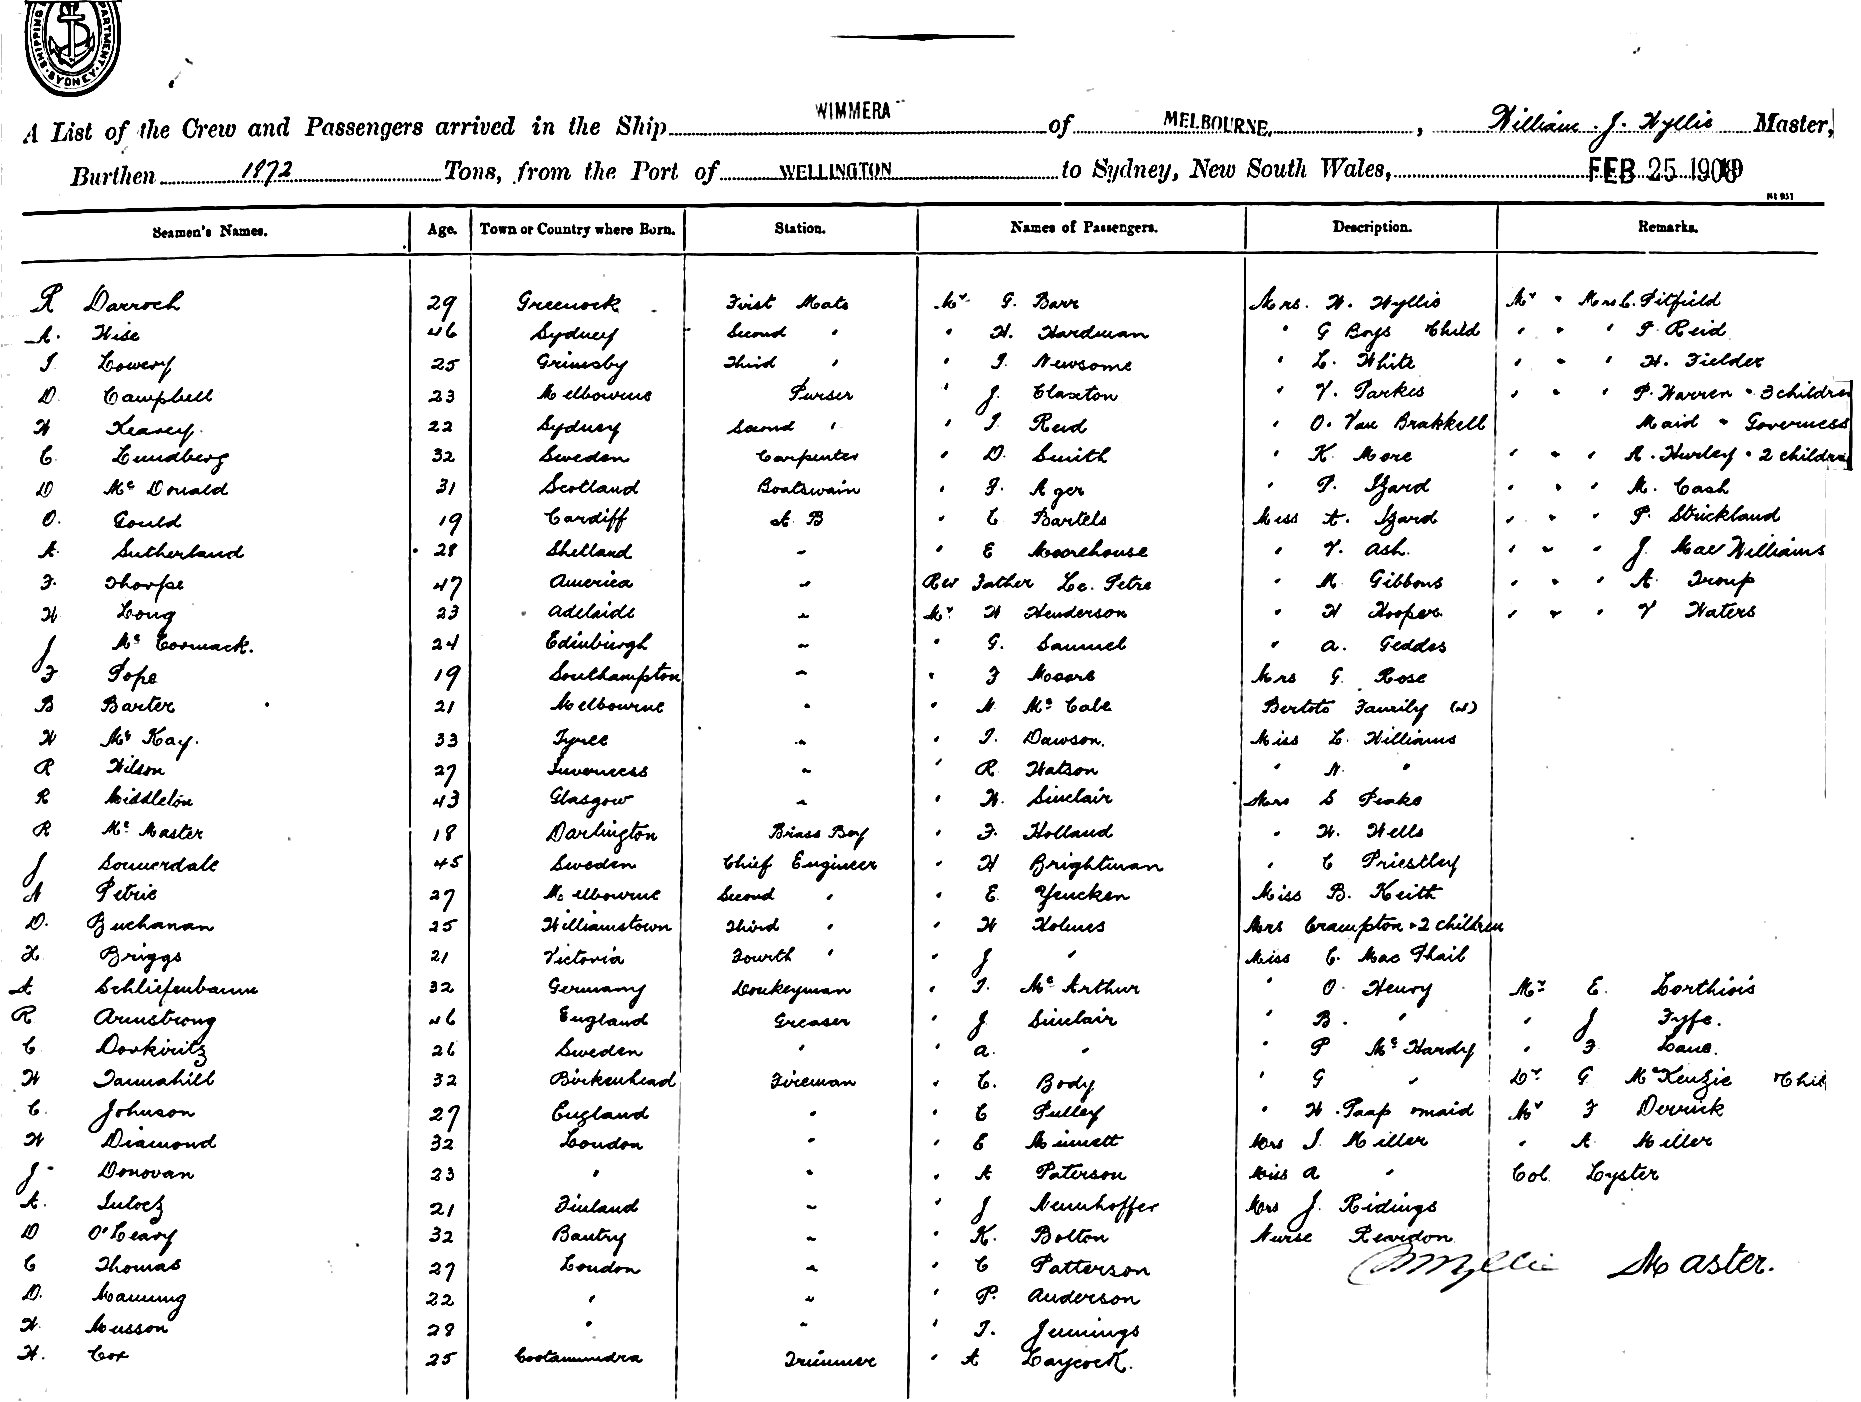 SHIPPING DEPARTMENT. SYDNEY
A List of the Crew and Passengers arrived in the Ship WIMMERA of MELBOURNE, , William J. Wyllie Master,
Burthen 1872 Tons, from the Port of WELLINGTON to Sydney, New South Wales, FEB 25 1909
Seamen's Names. Age. Town or Country where Born. Station. Names of Passengers. Description. Remarks.
R Darroch 29 Greenock First Mate Mr G. Barr Mrs. W. Wyllie Mr " Mrs C. Pitfield
A. Wise 46 Sydney Second " " H. Hardman " G Boys Child " " " P. Reid
J. Lowery 25 Grimsby Third " " T. Newsome " L. White " " " H. Fielder
D. Campbell 23 Melbourne Purser " J. Claxton " V. Parkes " " " P. Warren " 3 children
W Keasey. 22 Sydney Second " " T. Reid " O. Van Brakkell Maid " Governess
C. Lundberg 32 Sweden Carpenter " D. Smith " K. More " " " A. Hurley " 2 children
D McDonald 31 Scotland Boatswain " J. Ager " P. Izard " " " M. Cash
O. Gould 19 Cardiff A B " C Bartels Miss A. Izard " " " P. Strickland
A. Sutherland 28 Shetland " " E Moorehouse " V. Ash. " " " J. MacWilliams
F. Thorpe 47 America " Rev Father Le. Petre " M Gibbons " " " A. Troup
W Long 23 Adelaide " Mr W Henderson " H Hooper " " " V Waters
J McCormack. 24 Edinburgh " " G. Samuel " A. Geddes
F Pope 19 Southampton " " F Moore Mrs G. Rose
B Barter 21 Melbourne " " N McCabe Bertoto Family (4)
W McKay. 33 Tyree " " T. Dawson. Miss L. Williams
R Wilson 27 Inverness " " R. Watson " N. "
R Middleton 43 Glasgow " " W. Sinclair Mrs S Peake
R McMaster 18 Darlington Brass Boy " F. Holland " W. Wells
J Sonnerdale 45 Sweden Chief Engineer " H Brightman " C Priestley
A Petrie 27 Melbourne Second " " E. Yencken Miss B. Keith
D. Buchanan 25 Williamstown Third " " W Holmes Mrs Crampton " 2 children
L. Briggs 21 Victoria Fourth " " J " Miss C. MacPhail
A Schliefenbaum 32 Germany Donkeyman " T. McArthur " O. Henry Mr E. Lorthiois
R Armstrong 46 England Greaser " J Sinclair " B. " " J Fyfe.
C 26 Sweden " " A. " " P McHardy " F. Lane.
W Tannahill 32 Birkenhead Fireman " C. Body " G " Dr G McKenzie Chil
C. Johnson 27 England " " C Pulley " W. Paap maid Mr F Derrick
W Diamond 32 London " " E Minnett Mrs J. Miller " A Miller
J. Donovan 23 " " " A Paterson Miss A " Col. Lyster
A. 21 Finland " " J Neunhoffer Mrs J. Ridings
D O'Leary 32 Bantry " " K. Bolton Nurse Reardon
C Thomas 27 London " " C Patterson W Wyllie Master.
D. Manning 22 " " " P. Anderson
W. Musson 29 " " " T. Jennings
H. Cox 25 Cootamundra Trimmer " A Laycock.